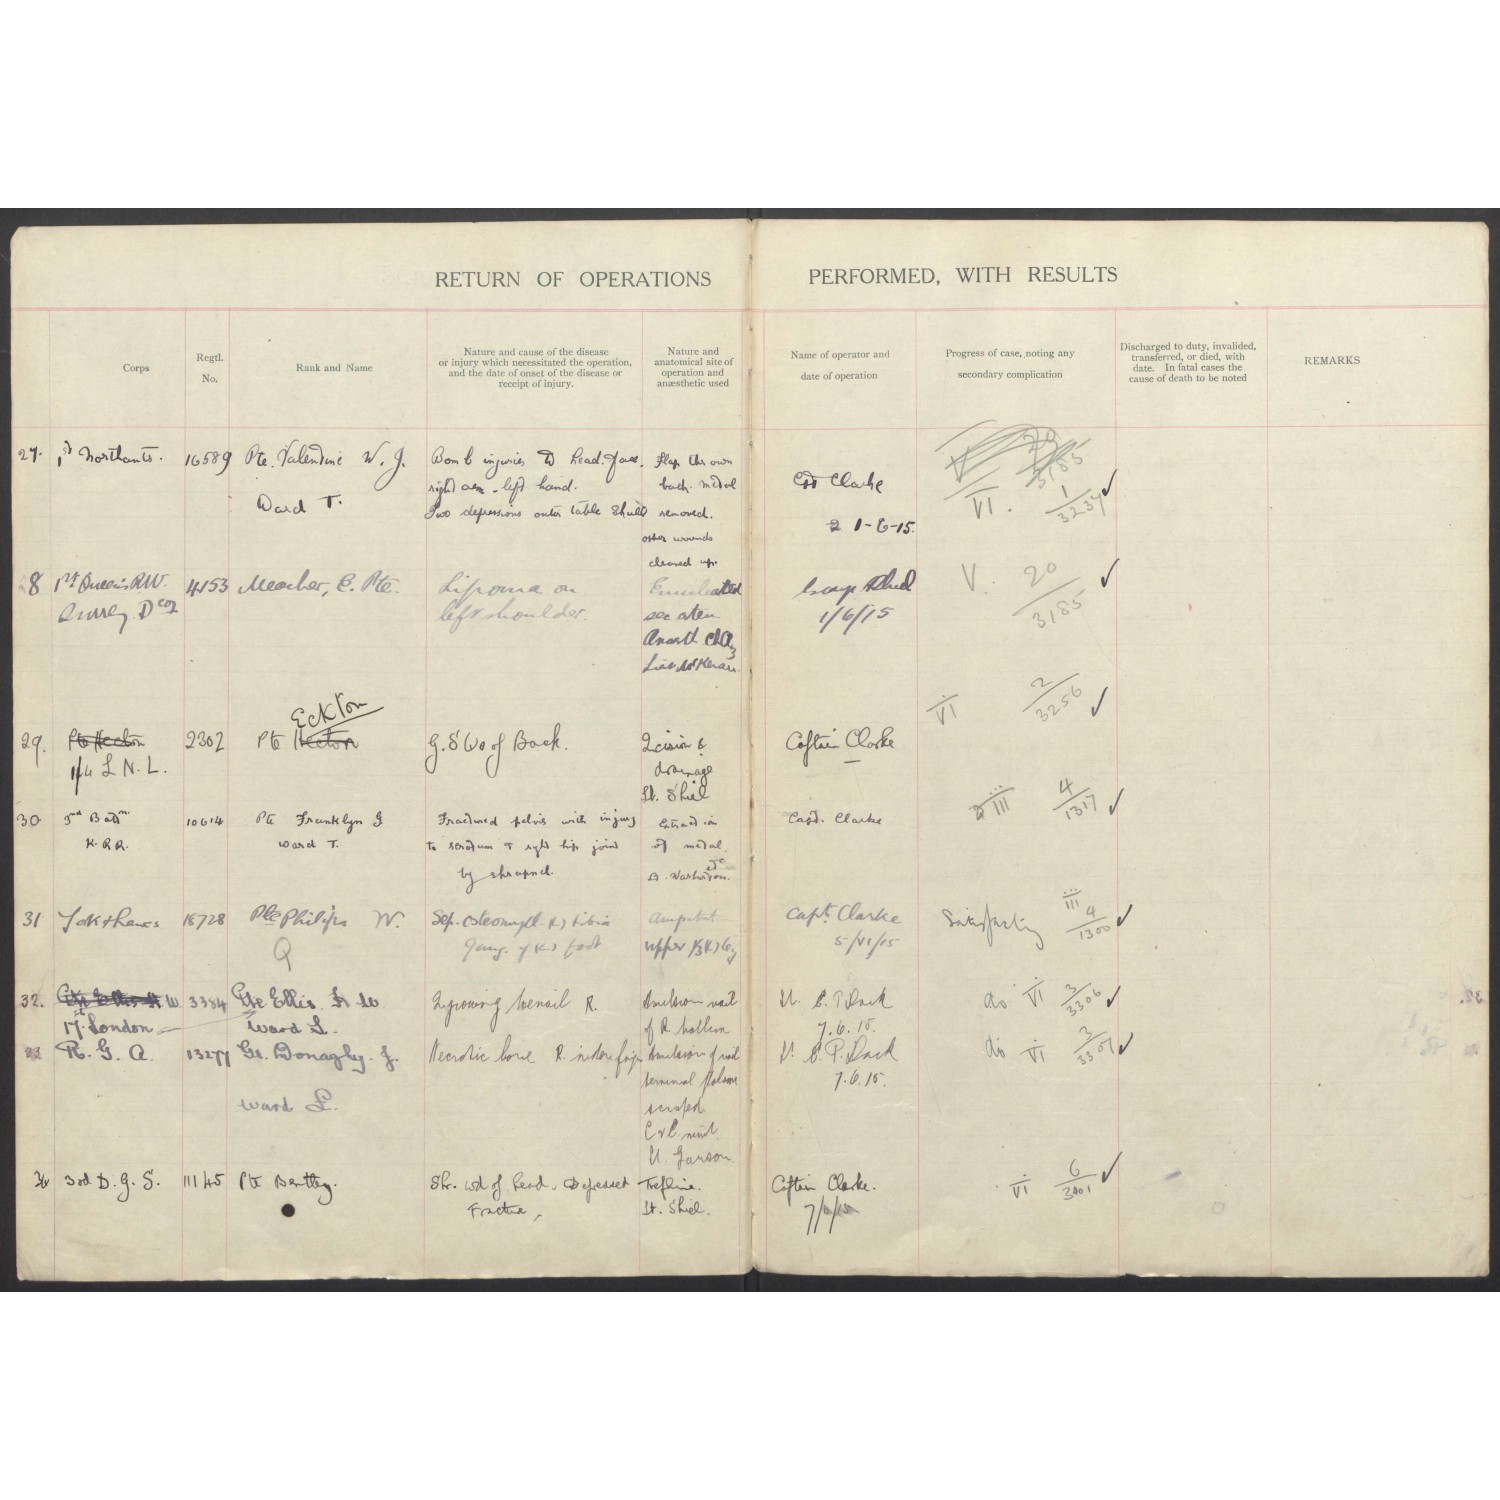 RETURN OF OPERATIONS PERFORMED, WITH RESULTS
Corps
Regtl.
No.
Rank and Name
Nature and cause of the disease
or injury which necessitated the operation,
and the date of onset of the disease or
receipt of injury.
Nature and
anatomical site of
operation and
anæsthetic used
Name of operator and
date of operation
Progress of case, noting any
secondary complication
Discharged to duty, invalided,
transferred, or died, with
date. In fatal cases the
cause of death to be noted
REMARKS
27. 1st Northants. 16589 Pte. Valentine W. J.
Ward T.
Bomb injuries to head. face.
right arm - left hand.
Two depressions outer table Skull
Flap thrown
back. metal
removed.
other wounds
cleaned up.
Clarke
1-6-15.
20
3185
VI. 1
3237 ✓
28 1st Queen's R.W.
Surrey D Coy
4153 Meacher, C. Pte.
Lipoma on
left shoulder.
Enucleated
1/6/15
V. 20
3185 ✓
29. Pte Hecton
1/4 L N. L.
2302 Pte Hecton
Eckton
G. S Wd of Back.
Incision &
drainage
Lt. Shiel
Captain Clarke
VI 2
3256 ✓
30 3rd Battn
K. R R.
10614 Pte Franklyn G
Ward T.
Fractured pelvis with injury
to scrotum & right hip joint
by shrapnel.
Extraction
of metal.
Capt. Clarke
III 4
1317 ✓
31 York & Lancs 18728 Pte Philips W.
Q
Sep. Osteomyel. (R) tibia
Gang. of (R) foot
Amputat
upper 1/3 (R) leg
Capt. Clarke
5/VI/15
Satisfactory III 4
1300 ✓
32. W.
17th London
3384 Pte Ellis. H W
Ward L.
Ingrowing toenail R.
Avulsion nail
of R hallux
7.6.15.
do VI 3
3306 ✓
33 R. G. A. 13277 Gr. Donaghy. J.
Ward L.
Necrotic bone R. index finger
Avulsion of nail
terminal phalanx
scraped.
7.6.15.
do VI 3
3307 ✓
34 3rd D. G. S. 11145 Pte Bentley.
Shr. wd of head. Depressed
Fracture,
Trephine.
Lt. Shiel.
Captain Clarke.
7/6/15
VI 6
3401 ✓